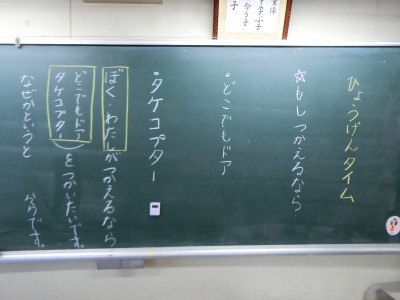 ひょうげんタイム
☆もしつかえるなら…
・どこでもドア
・タケコプター
ぼく・わたしがつかえるなら
どこでもドア
タケコプター
をつかいたいです。
なぜかというと
からです。